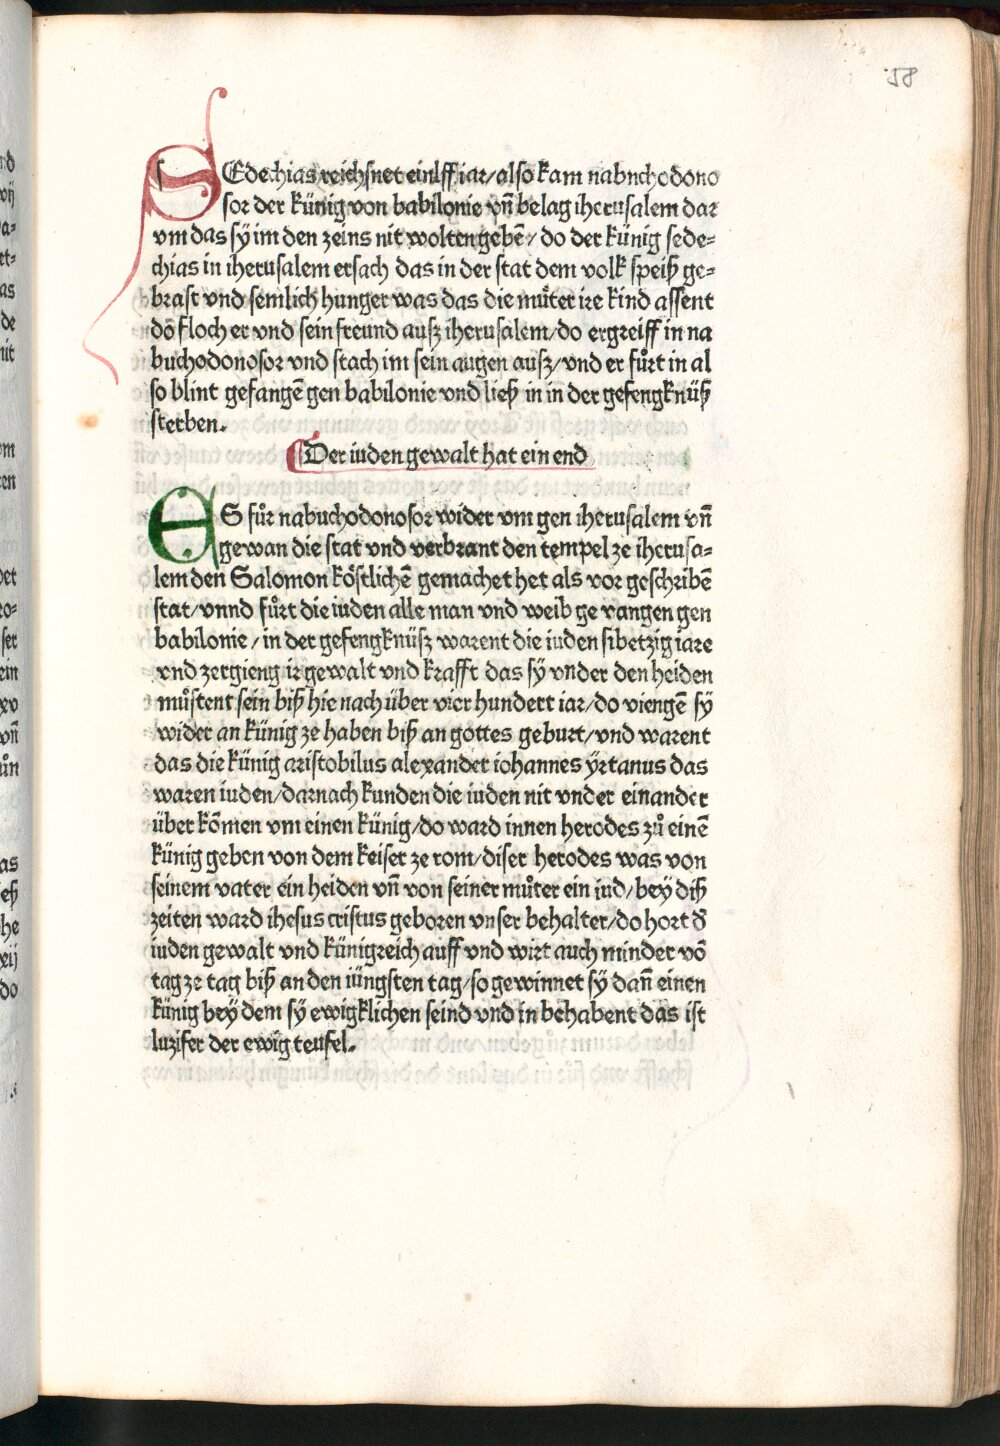 58
SEdechias reichsnet einlff iar/also kam nabuchodono
sor der künig von babilonie vn̄ belag iherusalem dar
vm das sÿ im den zeins nit wolten gebē/do der künig sede=
chias in iherusalem ersach das in der stat dem volk speiß ge=
brast vnd semlich hunger was das die můter ire kind assent
dō floch er vnd sein freund ausz iherusalem/do ergreiff in na
buchodonosor vnd stach im sein augen ausz/vnd er fůrt in al
so blint gefangē gen babilonie vnd ließ in in der gefengknüß
sterben.
Der iuden gewalt hat ein end
ES fůr nabuchodonosor wider vm gen iherusalem vn̄
gewan die stat vnd verbrant den tempel ze iherusa=
lem den Salomon köstlichē gemachet het als vor geschribē
stat/vnnd fůrt die iuden alle man vnd weib ge vangen gen
babilonie/in der gefengknüsz warent die iuden sibetzig iare
vnd zergieng ir gewalt vnd krafft das sÿ vnder den heiden
můstent sein biß hie nach über vier hundert iar/do viengē sÿ
wider an künig ze haben biß an gottes geburt/vnd warent
das die künig aristobilus alexander iohannes ÿrtanus das
waren iuden/darnach kunden die iuden nit vnder einander
über kōmen vm einen künig/do ward innen herodes zů einē
künig geben von dem keiser ze rom/diser herodes was von
seinem vater ein heiden vn̄ von seiner můter ein iud/beÿ diß
zeiten ward ihesus cristus geboren vnser behalter/do hort d̄
iuden gewalt vnd künigreich auff vnd wirt auch minder vō
tag ze tag biß an den iüngsten tag/so gewinnet sÿ dan̄ einen
künig beÿ dem sÿ ewigklichen seind vnd in behabent das ist
luzifer der ewig teufel.